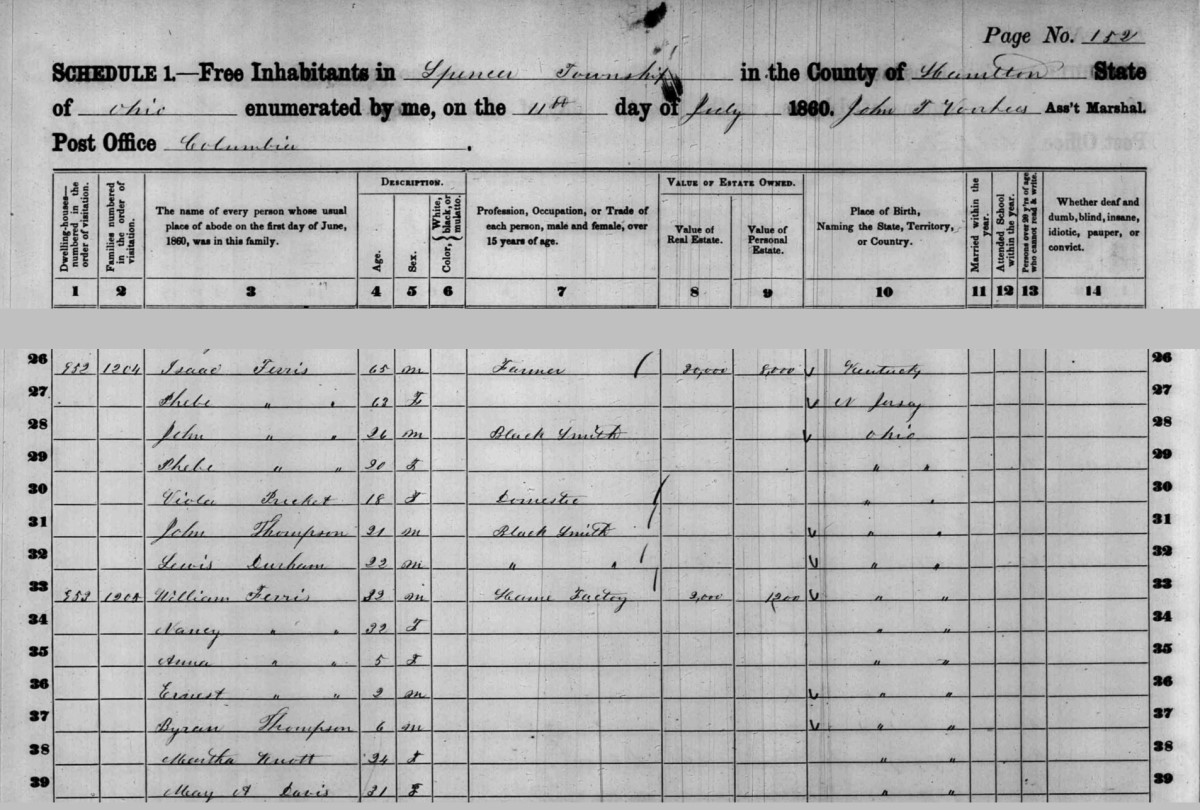 Page No. 152
SCHEDULE 1.—Free Inhabitants in Spencer Township in the County of Hamilton State
of Ohio enumerated by me, on the 11th day of July 1860. John T Voorhees Ass't Marshal.
Post Office Columbia.
Dwelling-houses—numbered in the order of visitation.
Families numbered in the order of visitation.
The name of every person whose usual place of abode on the first day of June, 1860, was in this family.
DESCRIPTION.
Age.
Sex.
Color, { White, black, or mulatto.
Profession, Occupation, or Trade of each person, male and female, over 15 years of age.
VALUE OF ESTATE OWNED.
Value of Real Estate.
Value of Personal Estate.
Place of Birth, Naming the State, Territory, or Country.
Married within the year.
Attended School within the year.
Persons over 20 y'rs of age who cannot read & write.
Whether deaf and dumb, blind, insane, idiotic, pauper, or convict.
1 2 3 4 5 6 7 8 9 10 11 12 13 14
26 952 1204 Isaac Ferris 65 m Farmer 20,000 8,000 Kentucky 26
27 Phebe " " 62 F N Jersey 27
28 John " " 26 m Black Smith Ohio 28
29 Phebe " " 20 F " " 29
30 Viola Pricket 18 F Domestic " " 30
31 John Thompson 21 m Black Smith " " 31
32 Lewis Durham 22 m " " " " 32
33 953 1205 William Ferris 32 m Hame Factory 2,000 1200 " " 33
34 Nancy " " 32 F " " 34
35 Anna " " 5 F " " 35
36 Ernest " " 2 m " " 36
37 Byran Thompson 6 m " " 37
38 Martha Knott 24 F " " 38
39 May A Davis 21 F " " 39